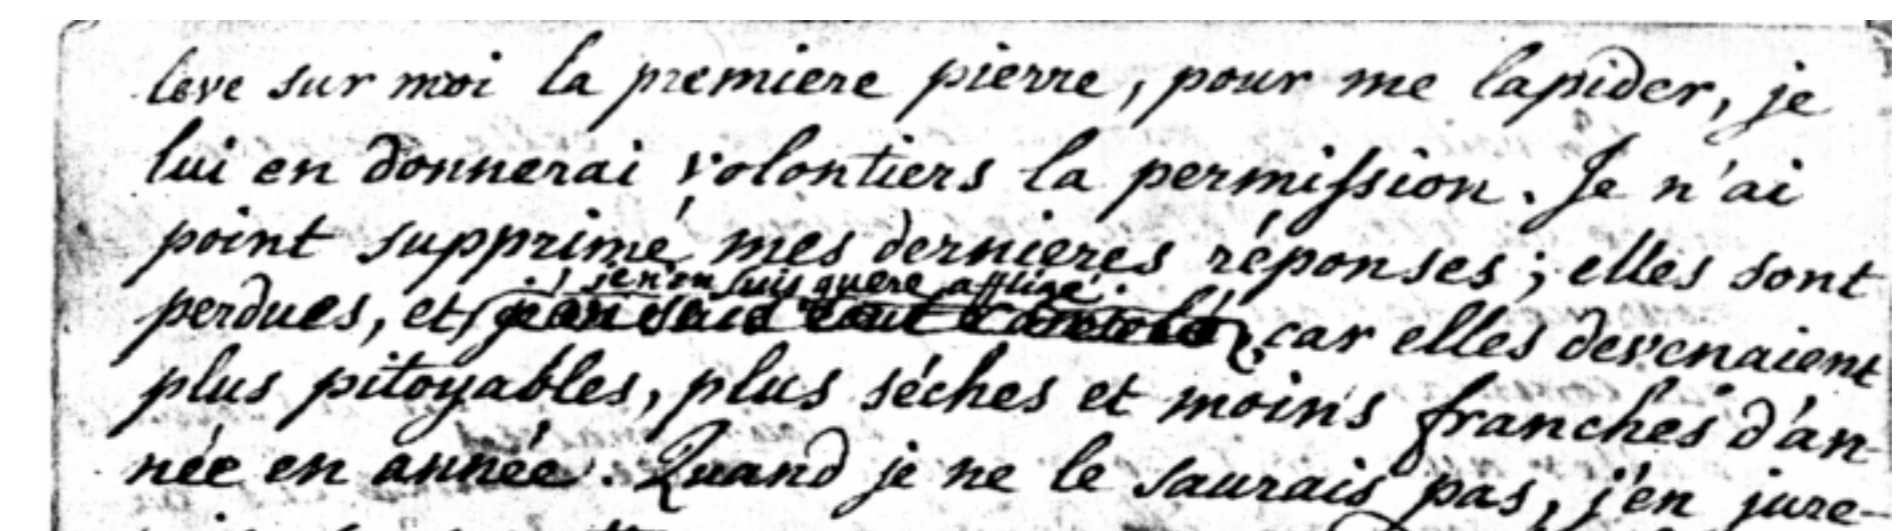 leve sur moi la premiere pierre, pour me lapider, je
lui en donnerai volontiers la permission. Je n'ai
point supprimé mes dernieres réponses ; elles sont
je n'en suis guere affligé
perdues, et j'en suis tout consolé, car elles devenaient
plus pitoyables, plus séches et moins franches d'an-
née en année. Quand je ne le saurais pas, j'en jure-